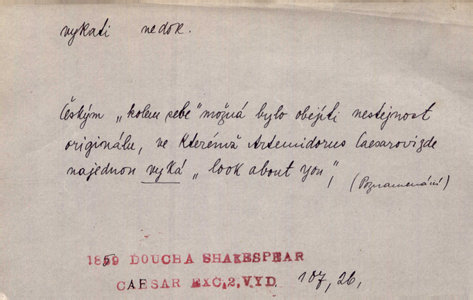 vykati nedok.
Českým „kolem sebe" možná bylo obejíti nestejnost
originálu, ve kterémž Artemidorus Caesarovi zde
najednou vyká „look about you",
(Poznamenání)
1859 DOUCHA SHAKESPEAR
CAESAR EXC,2,VYD 107,26,